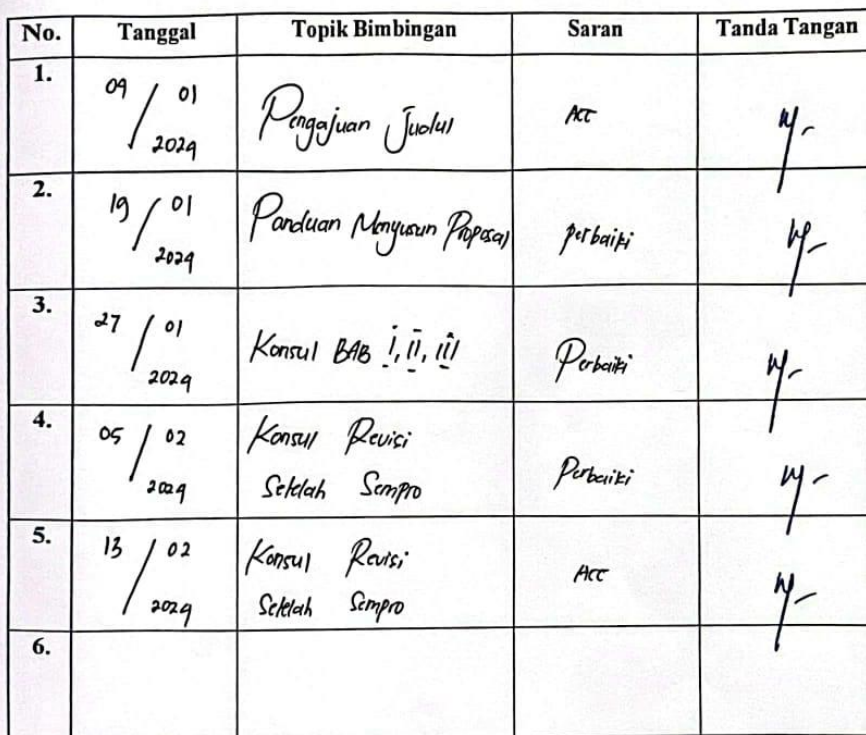 No. Tanggal Topik Bimbingan Saran Tanda Tangan
1. 09/01 2024 Pengajuan Judul ACC
2. 19/01 2024 Panduan Menyusun Proposal perbaiki
3. 27/01 2024 Konsul BAB I, II, III Perbaiki
4. 05/02 2024 Konsul Revisi Perbaiki
Setelah Sempro
5. 13/02 2024 Konsul Revisi ACC
Setelah Sempro
6.